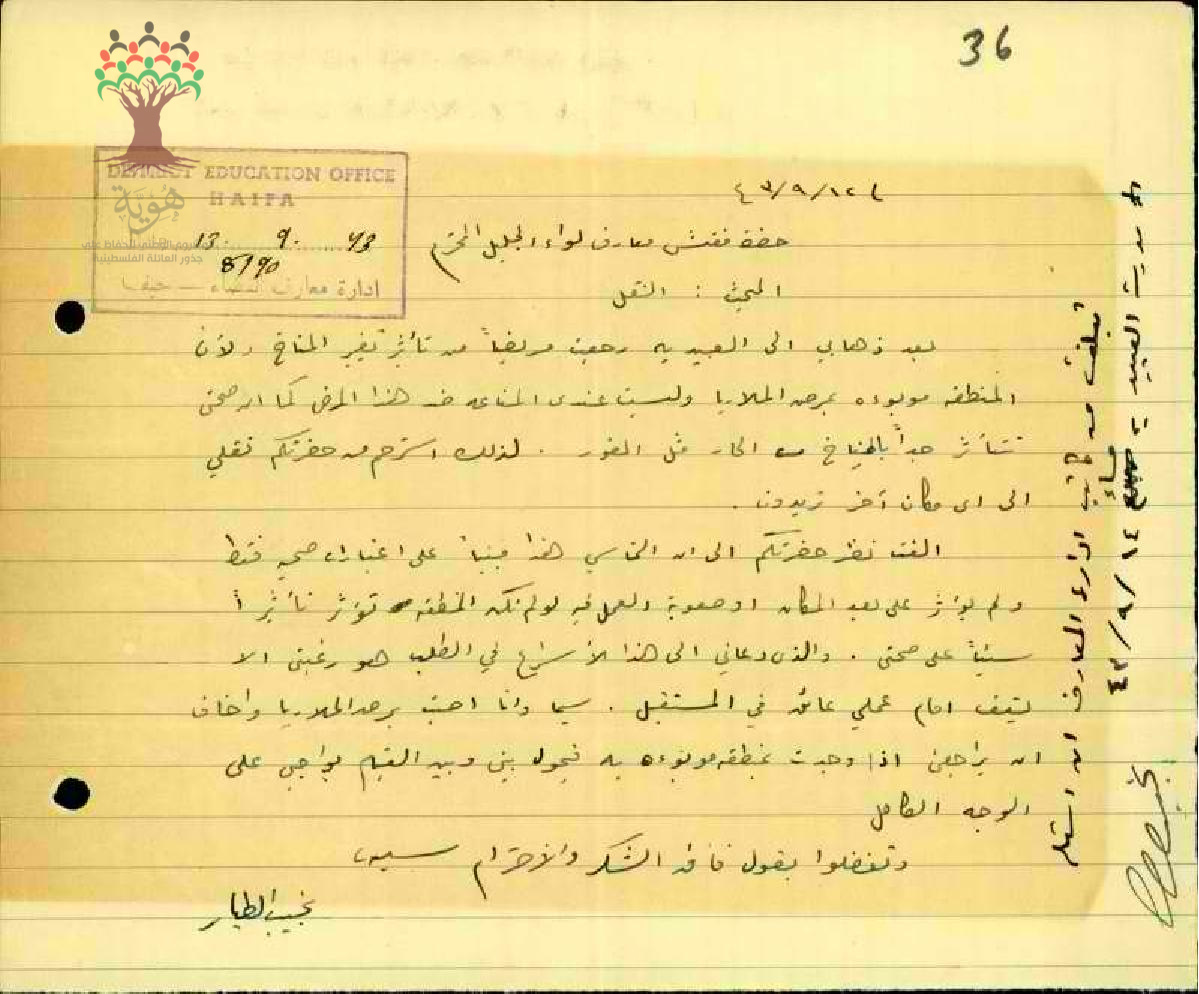 36
DISTRICT EDUCATION OFFICE
HAIFA
13 . 9 . 43
8190
ادارة معارف القضاء — حيفا
هُوِيَّة
المشروع الوطني للحفاظ على
جذور العائلة الفلسطينية
٤٣/٩/١٢
حضرة مفتش معارف لواء الجليل المحترم
المبحث : النقل
بعد ذهابي الى العبيديه رجعت مريضاً من تأثير تغير المناخ ولأن
المنطقه موبوءه بمرض الملاريا وليست عندى المناعه ضد هذا المرض كما ان صحتى
تتأثر جداً بالمناخ الحار مثل الغور . لذلك استرحم من حضرتكم نقلي
الى اى مكان آخر تريدون .
الفت نظر حضرتكم الى ان التماسي هذا مبنياً على اعتبارات صحيه فقط
ولم يؤثر على بعد المكان او صعوبة العمل فيه لو لم تكن المنطقه تؤثر تأثيراً
سيئاً على صحتى . والذى دعاني الى هذا الأسراع في الطلب هو رغبتى الا
يقف امام عملي عائق في المستقبل . سيما وانا اصبت بمرض الملاريا واخاف
ان يراجعنى اذا وجدت بمنطقه موبوءه به فيحول بينى وبين القيام بواجبي على
الوجه الكامل
وتفضلوا بقبول فائق الشكر والاحترام سيدي
نجيب الطيار
تبلغت من كاتب ادارة المعارف ان استلم
مدرسة العبيديه مساء ٤٣/٩/١٤
نجيب